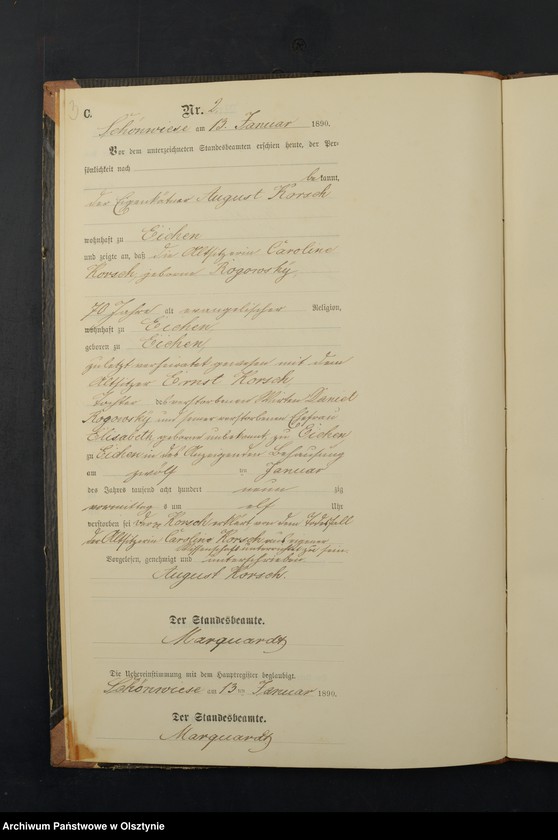 3
C.
Nr. 2.
Schönwiese am 13. Januar 1890.
Vor dem unterzeichneten Standesbeamten erschien heute, der Per-
sönlichkeit nach
be kannt,
der Eigenkätner August Korsch
wohnhaft zu Eichen
und zeigte an, daß die Altsitzerin Caroline
Korsch geborne Rogowsky
70 Jahre alt evangelischer Religion,
wohnhaft zu Eichen
geboren zu Eichen
zuletzt verheiratet gewesen mit dem
Altsitzer Ernst Korsch
Tochter des verstorbenen Wirten Daniel
Rogowsky und seiner verstorbenen Ehefrau
Elisabeth geborne unbekannt zu Eichen
zu Eichen in des Anzeigenden Behausung
am zwölf ten Januar
des Jahres tausend acht hundert neun zig
vormittags um elf Uhr
verstorben sei Der Korsch erklärt von dem Todesfall
der Altsitzerin Caroline Korsch aus eigener
Wissenschaft unterrichtet zu sein.
Vorgelesen, genehmigt und unterschrieben
August Korsch.
Der Standesbeamte.
Marquardt
Die Uebereinstimmung mit dem Hauptregister beglaubigt.
Schönwiese am 13 ten Januar 1890.
Der Standesbeamte.
Marquardt
Archiwum Państwowe w Olsztynie